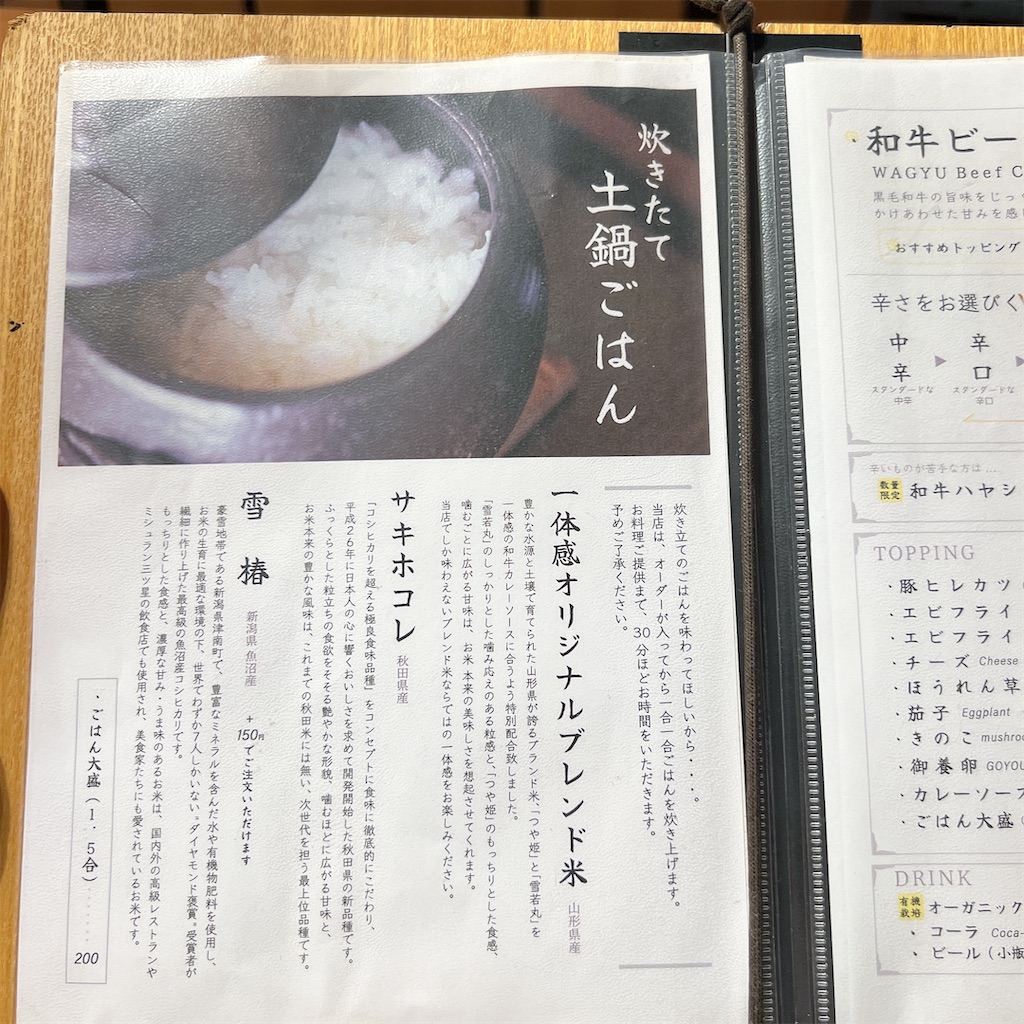 炊きたて
土鍋ごはん
炊き立てのごはんを味わってほしいから・・・。
当店は、オーダーが入ってから一合一合ごはんを炊き上げます。
お料理ご提供まで、30分ほどお時間をいただきます。
予めご了承ください。
一体感オリジナルブレンド米 山形県産
豊かな水源と土壌で育てられた山形県が誇るブランド米、「つや姫」と「雪若丸」を
一体感の和牛カレーソースに合うよう特別配合致しました。
「雪若丸」のしっかりとした噛み応えのある粒感と、「つや姫」のもっちりとした食感、
噛むごとに広がる甘味は、お米本来の美味しさを想起させてくれます。
当店でしか味わえないブレンド米ならではの一体感をお楽しみください。
サキホコレ 秋田県産
「コシヒカリを超える極良食味品種」をコンセプトに食味に徹底的にこだわり、
平成26年に日本人の心に響くおいしさを求めて開発開始した秋田県の新品種です。
ふっくらとした粒立ちの食欲をそそる艶やかな形貌、噛むほどに広がる甘味と、
お米本来の豊かな風味は、これまでの秋田米には無い、次世代を担う最上位品種です。
雪椿 新潟県 魚沼産 +150円でご注文いただけます
豪雪地帯である新潟県津南町で、豊富なミネラルを含んだ水や有機物肥料を使用し、
お米の生育に最適な環境の下、世界でわずか7人しかいない。ダイヤモンド褒賞。受賞者が
繊細に作り上げた最高級の魚沼産コシヒカリです。
もっちりとした食感と、濃厚な甘み・うま味のあるお米は、国内外の高級レストランや
ミシュラン三ツ星の飲食店でも使用され、美食家たちにも愛されているお米です。
・ごはん大盛（1．5合）……… 200
和牛ビー
WAGYU Beef C
黒毛和牛の旨味をじっ
かけあわせた甘みを感
おすすめトッピング
辛さをお選びく
中辛 ▶ 辛口 ▶
スタンダードな中辛 スタンダードな辛口
辛いものが苦手な方は…
数量限定 和牛ハヤシ
TOPPING
・豚ヒレカツ
・エビフライ
・エビフライ
・チーズ Cheese
・ほうれん草
・茄子 Eggplant
・きのこ mushroo
・御養卵 GOYOU
・カレーソース
・ごはん大盛
DRINK
有機栽培 オーガニック
・コーラ Coca-
・ビール（小瓶